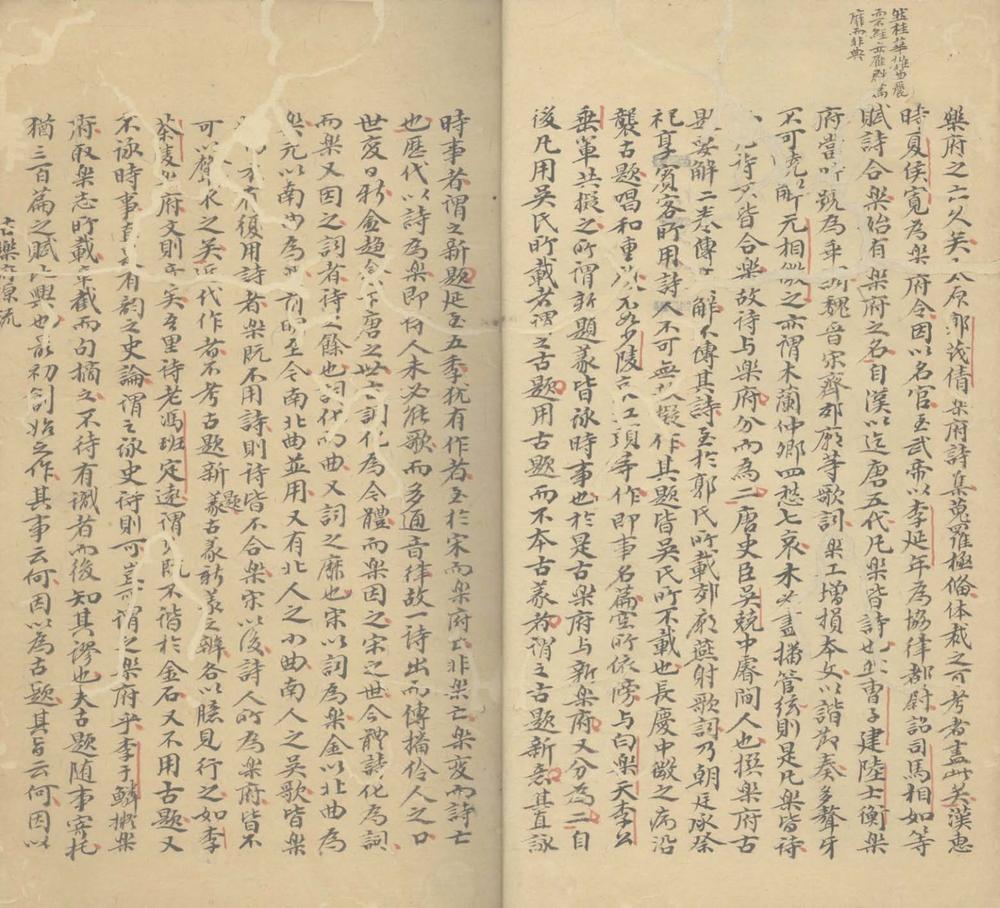 然桂華雜曲麗
而不經赤雁群篇
靡而非典
樂府之亡久矣太原郭茂倩樂府詩集蒐羅極俻体裁之可考者盡此矣漢惠
時夏侯寬為樂府令因以名官至武帝以李延年為協律都尉詔司馬相如等
賦詩合樂始有樂府之名自漢以迄唐五代凡樂皆詩也曹子建陸士衡樂
府當時號為乖調魏晉宋齊郊廟等歌詞樂工增損本文以諧節奏多聱牙
不可曉解元相似之亦謂木蘭仲卿四愁七哀未必盡播管絃則是凡樂皆詩
凡詩不皆合樂故詩与樂府分而為二唐史臣吳兢中睿間人也撰樂府古
題要解二卷傳解不傳其詩至於郭氏所載郊廟燕射歌詞乃朝廷承祭
祀享賓客所用詩人不可無擬作其題皆吳氏所不載也長慶中微之病沿
襲古題唱和重以少陵江頭等作即事名篇無所依傍与白樂天李公
垂軰共擬之所謂新題義皆詠時事也於是古樂府与新樂府又分為二自
後凡用吳氏所載者謂之古題用古題而不本古義者謂之古題新意其直詠
時事者謂之新題延至五季犹有作者至於宋而樂府亡非樂亡樂变而詩亡
也歷代以詩為樂即待人未必能歌而多通音律故一詩出而傳播伶人之口
世变日新金趨下唐之世古詞化為今體而樂因之宋之世今體詩化為詞
而樂又因之詞者詩之餘也詞代而曲又詞之靡也宋以詞為樂金以北曲為
樂元以南曲為前明至今南北曲並用又有北人之小曲南人之吳歌皆樂
有復用詩者樂既不用詩則詩皆不合樂宋以後詩人所為樂府皆不
可以奪衣之矣近代作者不考古題新題義古義新義之辨各以臆見行之如李
茶陵樂府文則奇矣吾里詩老馮班定遠謂其既不諧於金石又不用古題又
不詠時事直是有韵之史論謂之詠史詩則可豈可謂之樂府乎李于鱗擬樂
府取樂志所載章截而句摘之不待有識者而後知其謬也夫古題随事寄托
猶三百篇之賦比興也最初創始之作其事云何因以為古題其旨云何因以
古樂府源流